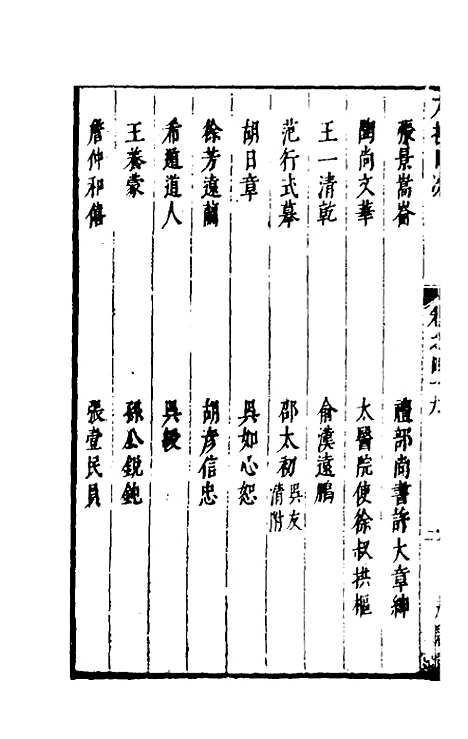 張景嵩崙 禮部尚書許大章紳
陶尚文華 太醫院使徐叔拱樞
王一清乾 俞漢遠鵬
范行式摹 邵太初吳友清附
胡日章 吳如心恕
徐芳遠蘭 胡彥信忠
希道道人 吳綬
王養蒙 孫公銳鈍
詹仲和僖 張壹民員